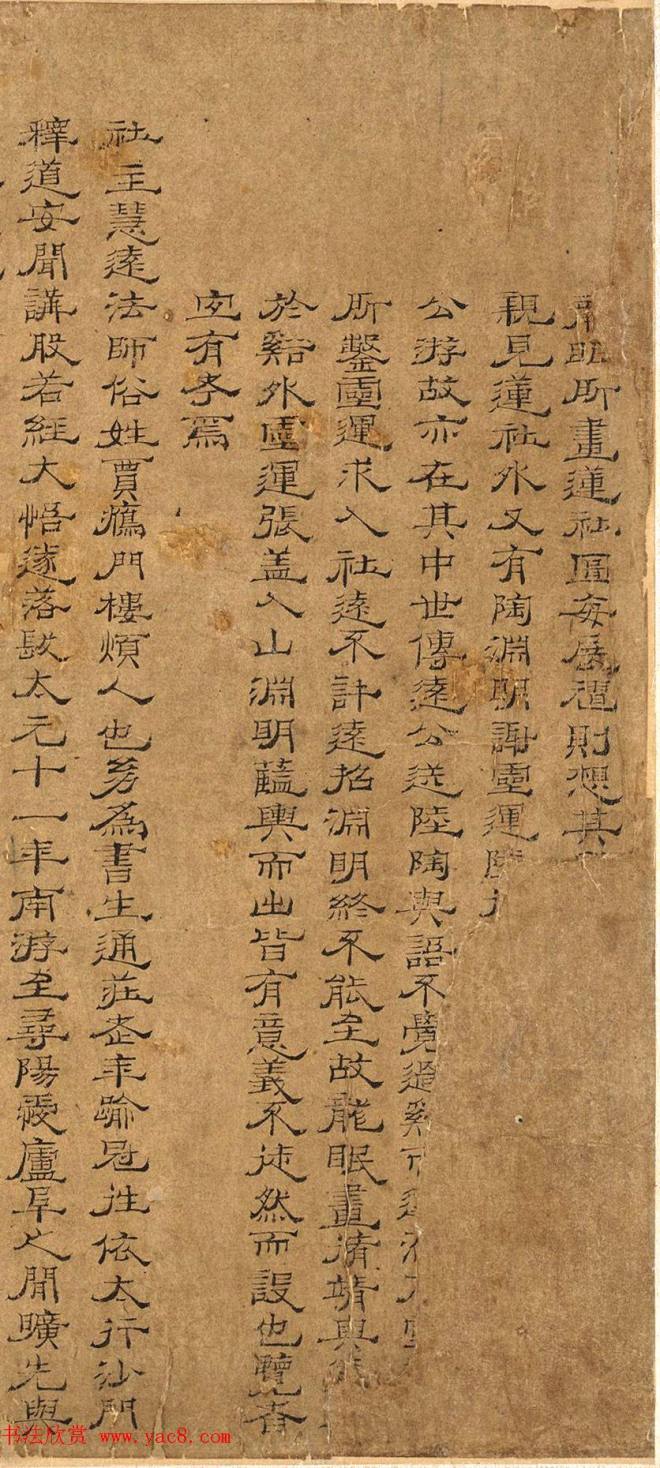 眠所畫蓮社圖每展禮則想其
親見蓮社外又有陶淵明謝靈運陸
公游故亦在其中世傳遠公送陸陶與語不覺過谿
所鑿靈運求入社遠不許遠招淵明終不能至故龍眠畫脩靖與
於谿外靈運張盖入山淵明藍輿而出皆有意義不徒然而設也覽者
宜有考焉
社主慧遠法師俗姓賈鴈門樓煩人也為書生通莊老年踰冠往依太行沙門
釋道安聞講般若經大悟遂落髮太元十一年南游至尋陽愛廬阜之閒曠先與
书法欣赏 www.yac8.com